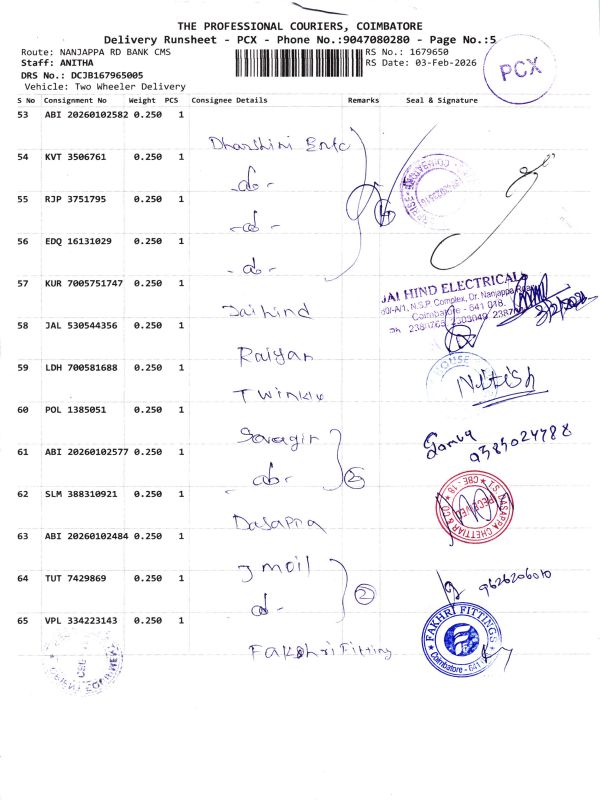 THE PROFESSIONAL COURIERS, COIMBATORE
Delivery Runsheet - PCX - Phone No.:9047080280 - Page No.:5
Route: NANJAPPA RD BANK CMS RS No.: 1679650
Staff: ANITHA RS Date: 03-Feb-2026
DRS No.: DCJB167965005
Vehicle: Two Wheeler Delivery
PCX
S No Consignment No Weight PCS Consignee Details Remarks Seal & Signature
53 ABI 20260102582 0.250 1
Dharshini Ente
54 KVT 3506761 0.250 1
-do-
55 RJP 3751795 0.250 1
-do-
4
56 EDQ 16131029 0.250 1
-do-
57 KUR 7005751747 0.250 1
Jaihind
JAI HIND ELECTRICALS
N.S.P. Complex, Dr. Nanjappa Road
Coimbatore - 641 018.
3/2/2026
58 JAL 530544356 0.250 1
Raiyan
59 LDH 700581688 0.250 1
Twinkle
HOUSE
Nitish
60 POL 1385051 0.250 1
61 ABI 20260102577 0.250 1
-do-
2
62 SLM 388310921 0.250 1
Dasappa
T.S. DASAPPA CHETTIAR & CO
CBE - 18
RECEIVED
63 ABI 20260102484 0.250 1
Jmoil
64 TUT 7429869 0.250 1
do-
2
9626206010
65 VPL 334223143 0.250 1
Fakhri Fitting
FAKHRI FITTINGS
Coimbatore - 641